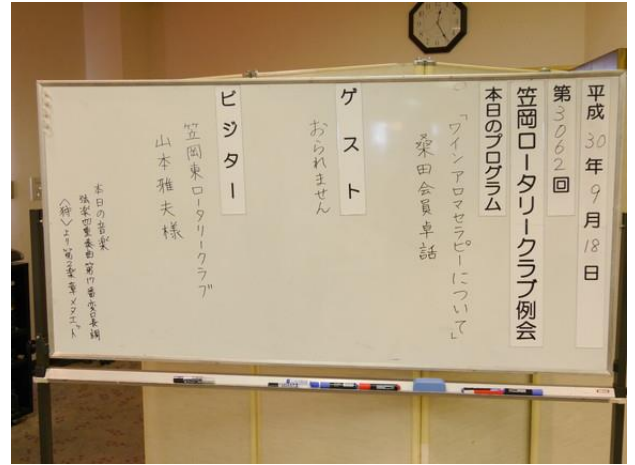 平成30年9月18日
第3062回
笠岡ロータリークラブ例会
本日のプログラム
「ワインアロマセラピーについて」
桑田会員卓話
ゲスト
おられません
ビジター
笠岡東ロータリークラブ
山本雅夫様
本日の音楽
弦楽四重奏曲第17番変ロ長調
〈狩〉より第2楽章メヌエット